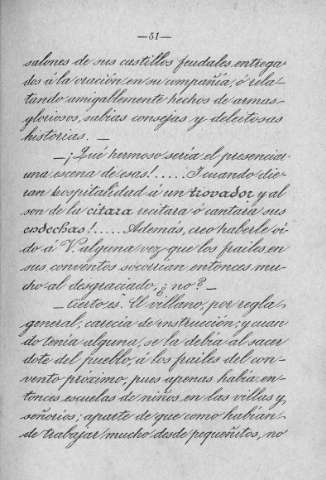 —51—
salones de sus castillos feudales, entrega-
dos á la oración en su compañía, ó rela-
tando amigablemente hechos de armas
gloriosos, sabias consejas y deleitosas
historias. —
—¡Qué hermoso sería el presenciar
una escena de esas!..... ¡Y cuando die-
ran hospitalidad á un trovador y al
son de la cítara recitara ó cantara sus
endechas!..... Además, creo haberle oí-
do á V. alguna vez que los frailes en
sus conventos socorrían entonces mu-
cho al desgraciado, ¿no? —
—Cierto es. El villano, por regla
general, carecía de instrucción; y cuan-
do tenía alguna, se la debía al sacer-
dote del pueblo, á los frailes del con-
vento próximo, pues apenas había en-
tonces escuelas de niños en las villas y
señoríos; aparte de que como habían
de trabajar mucho desde pequeñitos, no